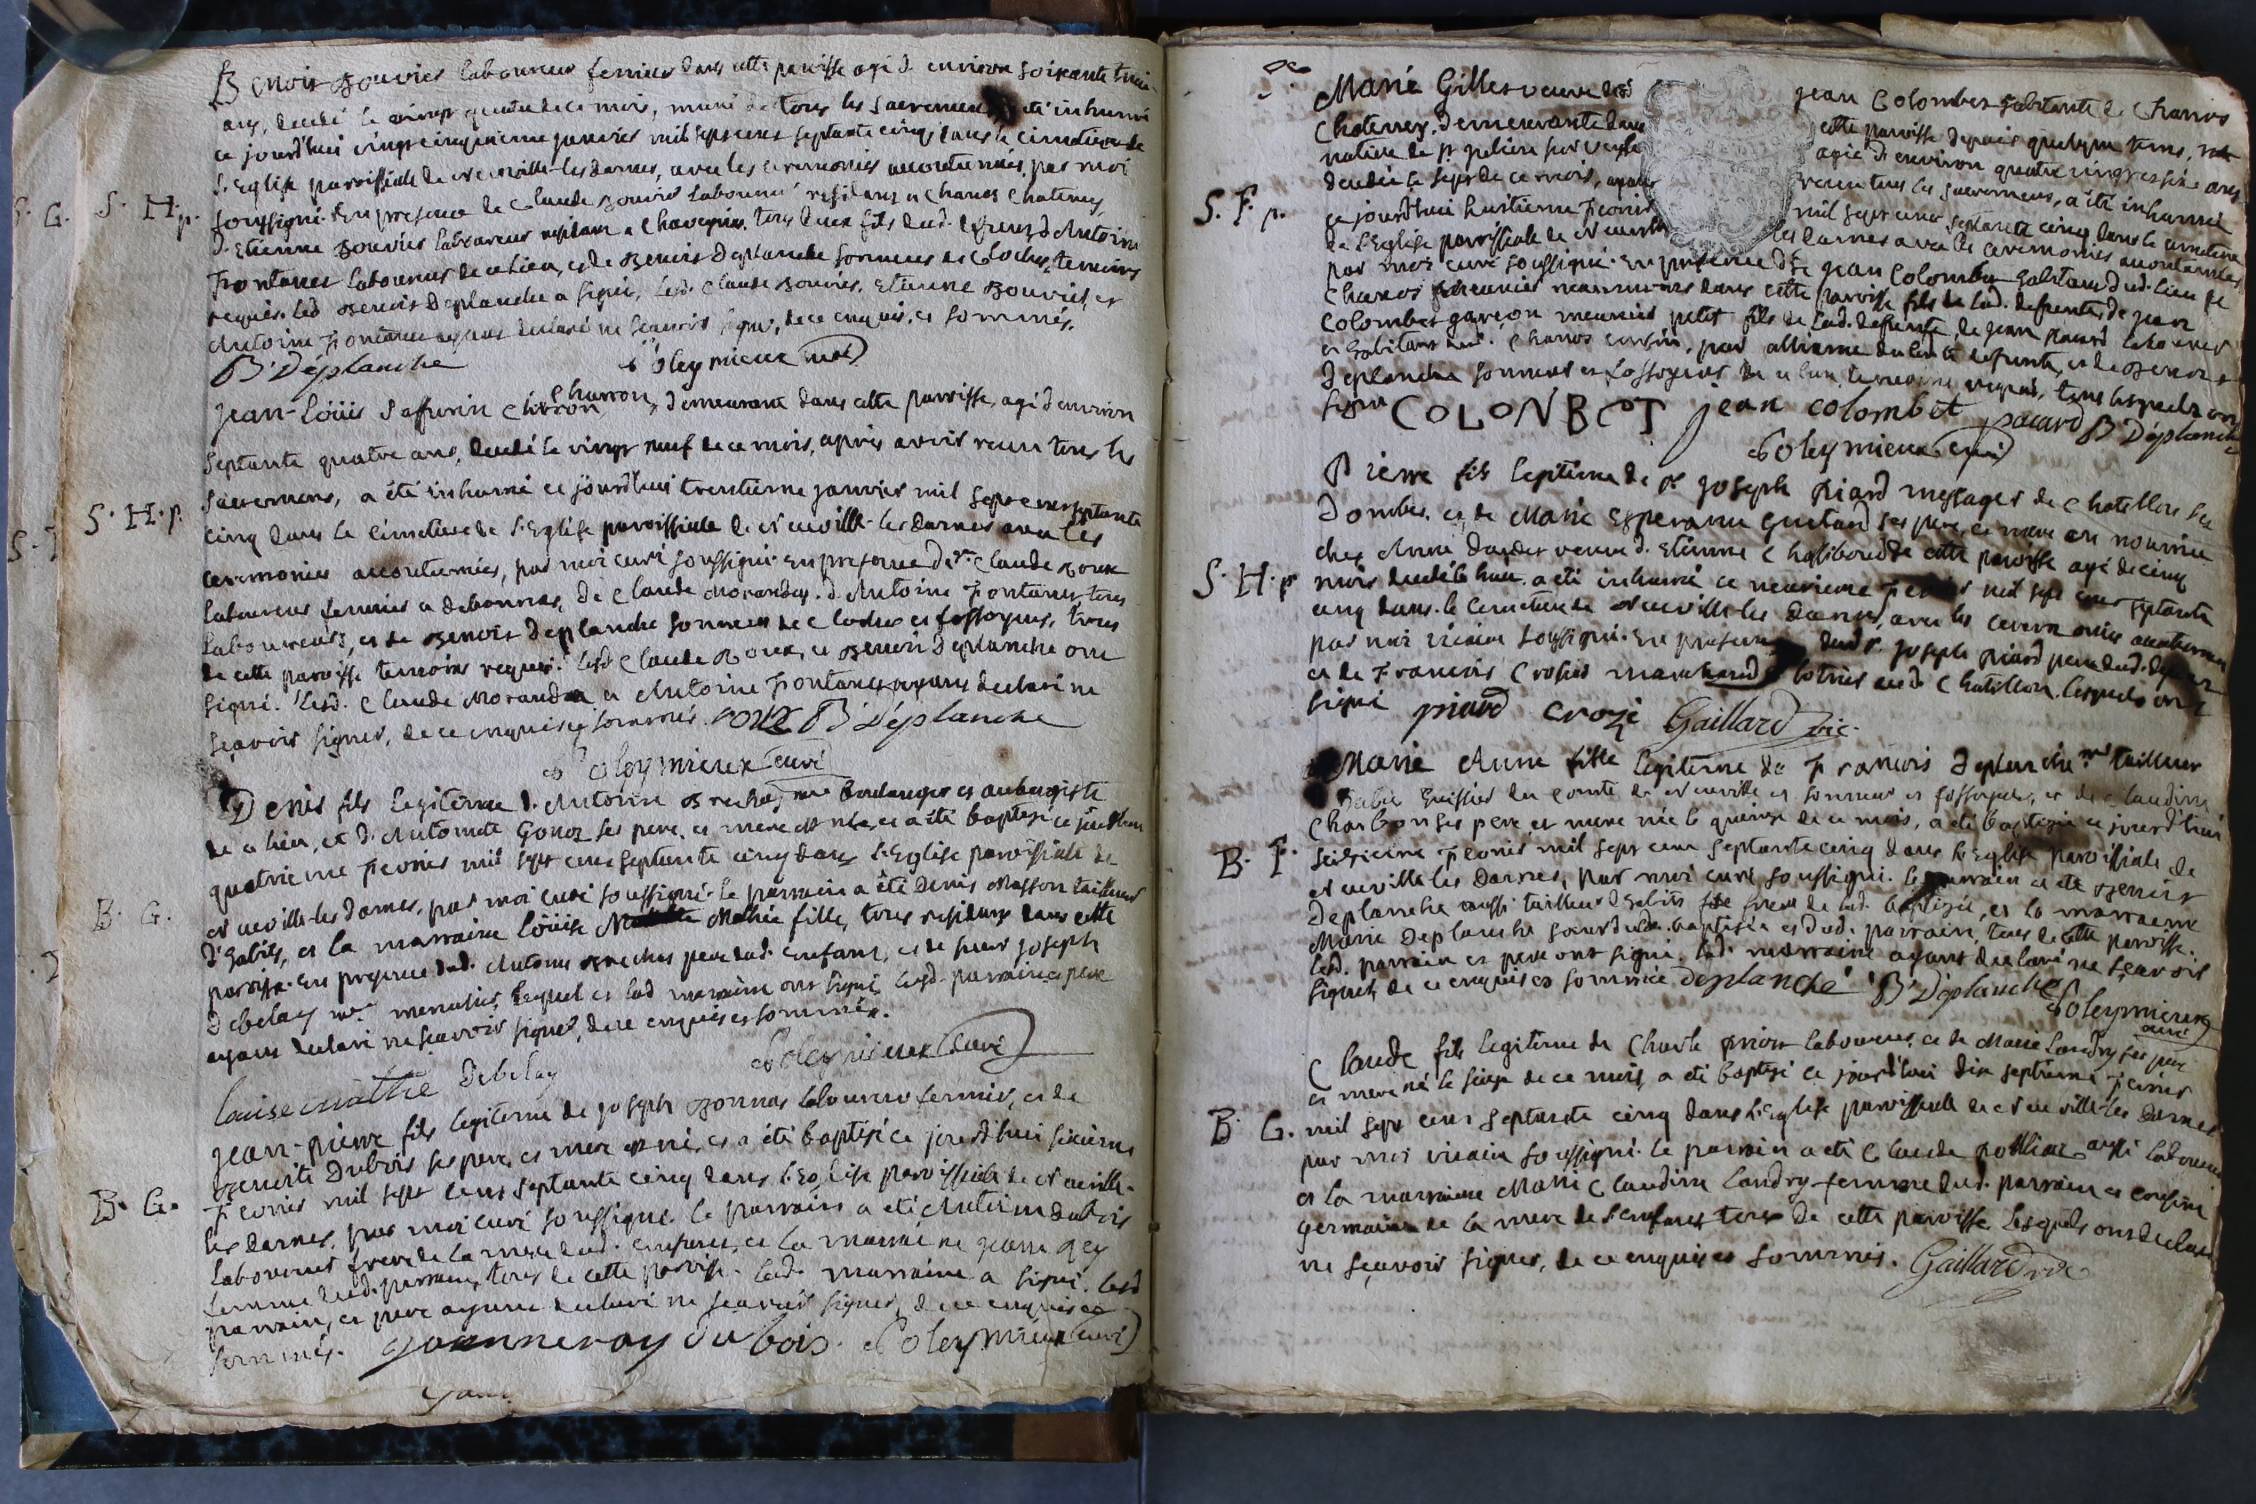 Benoit Bouvier laboureur fermier dans cette paroisse agé d'environ soixante trois
ans, decedé le vingt quatre de ce mois, muni de tous les sacremens, a été inhumé
ce jourd'hui vingt cinquieme janvier mil sept cent septante cinq dans le cimetiere de
l'Eglise paroissiale de Neuville-les-dames, avec les ceremonies accoutumées, par moi
S. H. p.
soussigné. En presence de Claude Bouvier laboureur residant a Chanos Chatenay,
d'Etienne Bouvier laboureur residant a Chaveyriat, tous deux fils dud. defunt d'Antoine
Fontanes laboureur de ce lieu, et de Benoit Deplanche sonneur de cloches, temoins
requis. Led. Benoit Deplanche a signé, lesd. Claude Bouvier, Etienne Bouvier, et
Antoine Fontanes ayans declaré ne sçavoir signer, de ce enquis, et sommés.
B Déplanche Soleymieux curé
Jean-Loüis Saffurin Charron, demeurant dans cette paroisse, agé d'environ
septante quatre ans, decedé le vingt neuf de ce mois, après avoir reçu tous les
S. H. p.
sacremens, a été inhumé ce jourd'hui trentieme janvier mil sept cent septante
cinq dans le cimetiere de l'Eglise paroissiale de Neuville-les-dames avec les
ceremonies accoutumées, par moi curé soussigné. En presence de Sr. Claude Roux
laboureur fermier a debonnas, de Claude Morandas, d'Antoine Fontanes tous
laboureurs, et de Benoit Deplanche sonneur de cloches et fossoyeur, tous
de cette paroisse temoins requis. Lesd. Claude Roux, et Benoit Deplanche ont
signé. Lesd. Claude Morandas et Antoine Fontanes ayans declaré ne
sçavoir signer, de ce enquis et sommés. roux B Déplanche
Soleymieux curé
Denis fils legitime d'Antoine Brechet me boulanger et aubergiste
de ce lieu, et d'Antoinete Gonoz ses pere, et mere est né, et a été baptisé ce jourd'hui
quatrieme Fevrier mil sept cent septante cinq dans l'Eglise paroissiale de
B. G.
Neuville-les-dames, par moi curé soussigné. Le parrain a été Denis Masson tailleur
d'habits, et la marraine Loüise Mathie fille, tous residans dans cette
paroisse. En presence dud. Antoine Brechet pere dud. enfant, et de sieur Joseph
debelay me menusier, lequel et lad. marraine ont signé, lesd. parrain et pere
ayans declaré ne sçavoir signer, de ce enquis et sommés.
Louise mathie Debelay Soleymieux curé
Jean-pierre fils legitime de Joseph Bonnas laboureur fermier, et de
Benoite Dubois ses pere, et mere est né, et a été baptisé ce jourd'hui sixieme
B. G.
Fevrier mil sept cent septante cinq dans l'Eglise paroissiale de Neuville-
les-dames, par moi curé soussigné. Le parrain a été Antoine dubois
laboureur frere de la mere dud. enfant, et la marraine jeanne Rey
femme dud. parrain, tous de cette paroisse. Lad. marraine a signé. Lesd.
parrain, et pere ayans declaré ne sçavoir signer, de ce enquis et
sommés. Jeanne ray du bois. Soleymieux curé
Marie Gilles veuve de Jean Colombet habitante de Chanos
Chatenay, demeurante dans cette paroisse depuis quelque tems,
native de St julien sur veyle agée d'environ quatre vingt seize ans,
decedée le sept de ce mois, ayant reçu tous les sacremens, a été inhumée
S. F. p.
ce jourd'hui huitieme Fevrier mil sept cent septante cinq dans le cimetiere
de l'Eglise paroissiale de Neuville les dames avec les ceremonies accoutumées
par moi curé soussigné. En presence de Jean Colombet habitant dud. lieu de
Chanos meunier dans cette paroisse fils de lad. defunte, de Jean
Colombet garçon meunier petit fils de lad. defunte, de Jean
et habitant dud. Chanos cousin, par alliance de lad. defunte, et de Benoit
Deplanche sonneur et fossoyeur de ce lieu temoins requis, tous lesquels ont
signé COLONBET jean colombet pacard B Déplanche
Soleymieux curé
Pierre fils legitime de Sr Joseph Piard messager de Chatillon les
Dombes, et de Marie Esperance Guitard ses pere, et mere en nourrice
chez Anne veuve d'Etienne de cette paroisse agé de cinq
S. H. p
mois decedé le huit, a été inhumé ce neuvieme Fevrier mil sept cent septante
cinq dans le cimetiere de Neuville-les-Dames, avec les ceremonies accoutumées
par moi vicaire soussigné. En presence dud. Sr. Joseph Piard pere dud. defunt
et de Francois Crosier marchand aud. Chatillon. lesquels ont
signé piard crozi Gaillard vic.
Marie Anne fille legitime de Francois Deplanche me tailleur
d'habits huissier du comté de Neuville et sonneur et fossoyeur, et de Claudine
Charbon ses pere, et mere née le quinze de ce mois, a été baptisée ce jourd'hui
B F.
seizieme Fevrier mil sept cent septante cinq dans l'Eglise paroissiale de
Neuville les Dames, par moi curé soussigné. Le parrain a été Benoit
Deplanche aussi tailleur d'habits frere de lad. baptisée, et la marraine
Marie Deplanche soeur de lad. baptisée et dud. parrain, tous de cette paroisse.
Lesd. parrain et pere ont signé. Lad. marraine ayant declaré ne sçavoir
signer, de ce enquise et sommée deplanche B Déplanche
Soleymieux curé
Claude fils legitime de Charle prior laboureur, et de Marie Landry ses pere
et mere né le seize de ce mois, a été baptisé ce jourd'hui dix septieme Fevrier
B G.
mil sept cent septante cinq dans l'Eglise paroissiale de Neuville-les Dames
par moi vicaire soussigné. Le parrain a été Claude aussi laboureur
et la marraine Marie Claudine Landry femme dud. parrain et cousine
germaine de la mere de l'enfant tous de cette paroisse lesquels ont declaré
ne sçavoir signer, de ce enquis et sommés. Gaillard vic